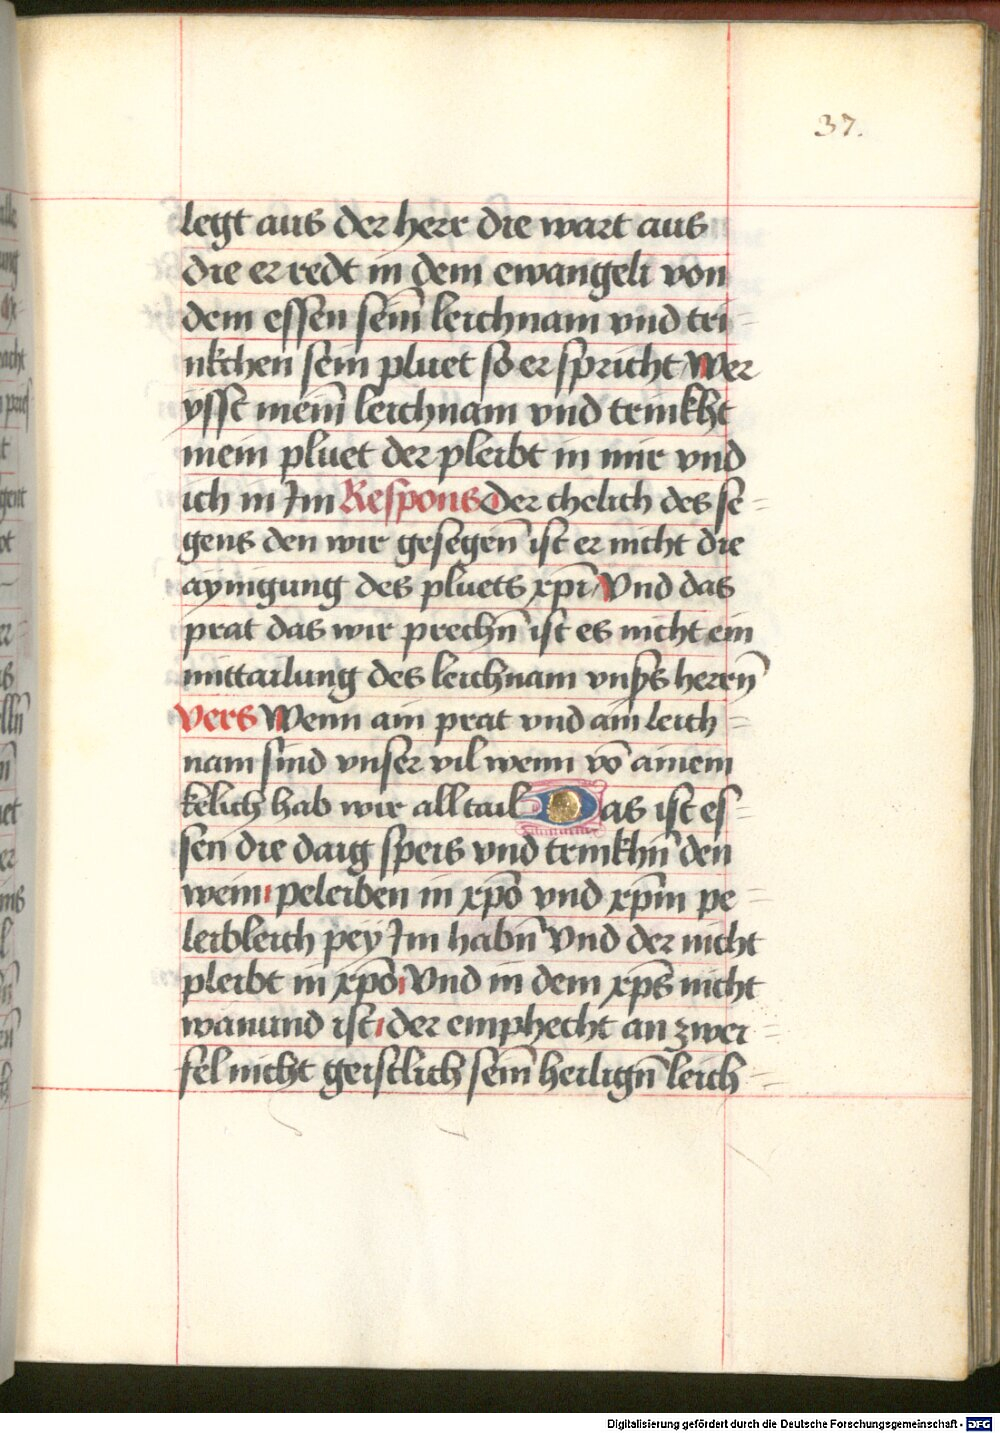 37.
legt aus der herr die wart aus
die er redt in dem ewangeli von
dem essen seim̄ leichnam vnd tri=
nkchen sein pluet so er spricht Wer
ysst meim̄ leichnam vnd trinkht
mein pluet der pleibt in mir vnd
ich in Im Respons Der chelich des se=
gens den wir gesegen̄ ist er nicht die
aynigung des pluets xp̄i Vnd das
prat das wir prechn̄ ist es nicht ein
mittailung des leichnam vnsers herrn̄
Vers Wenn ain prat vnd ain leich=
nam sind vnser vil wenn vō ainem
kelich hab wir all tail Das ist es=
sen die daig speis vnd trinkhn̄ den
wein peleiben in xp̄o vnd xp̄m pe=
leibleich pey Im habn̄ Vnd der nicht
pleibt in xp̄o Vnd in dem xp̄s nicht
wanund ist der emphecht an zwei=
fel nicht geistlich sein̄ heilign̄ leich=
Digitalisierung gefördert durch die Deutsche Forschungsgemeinschaft - DFG